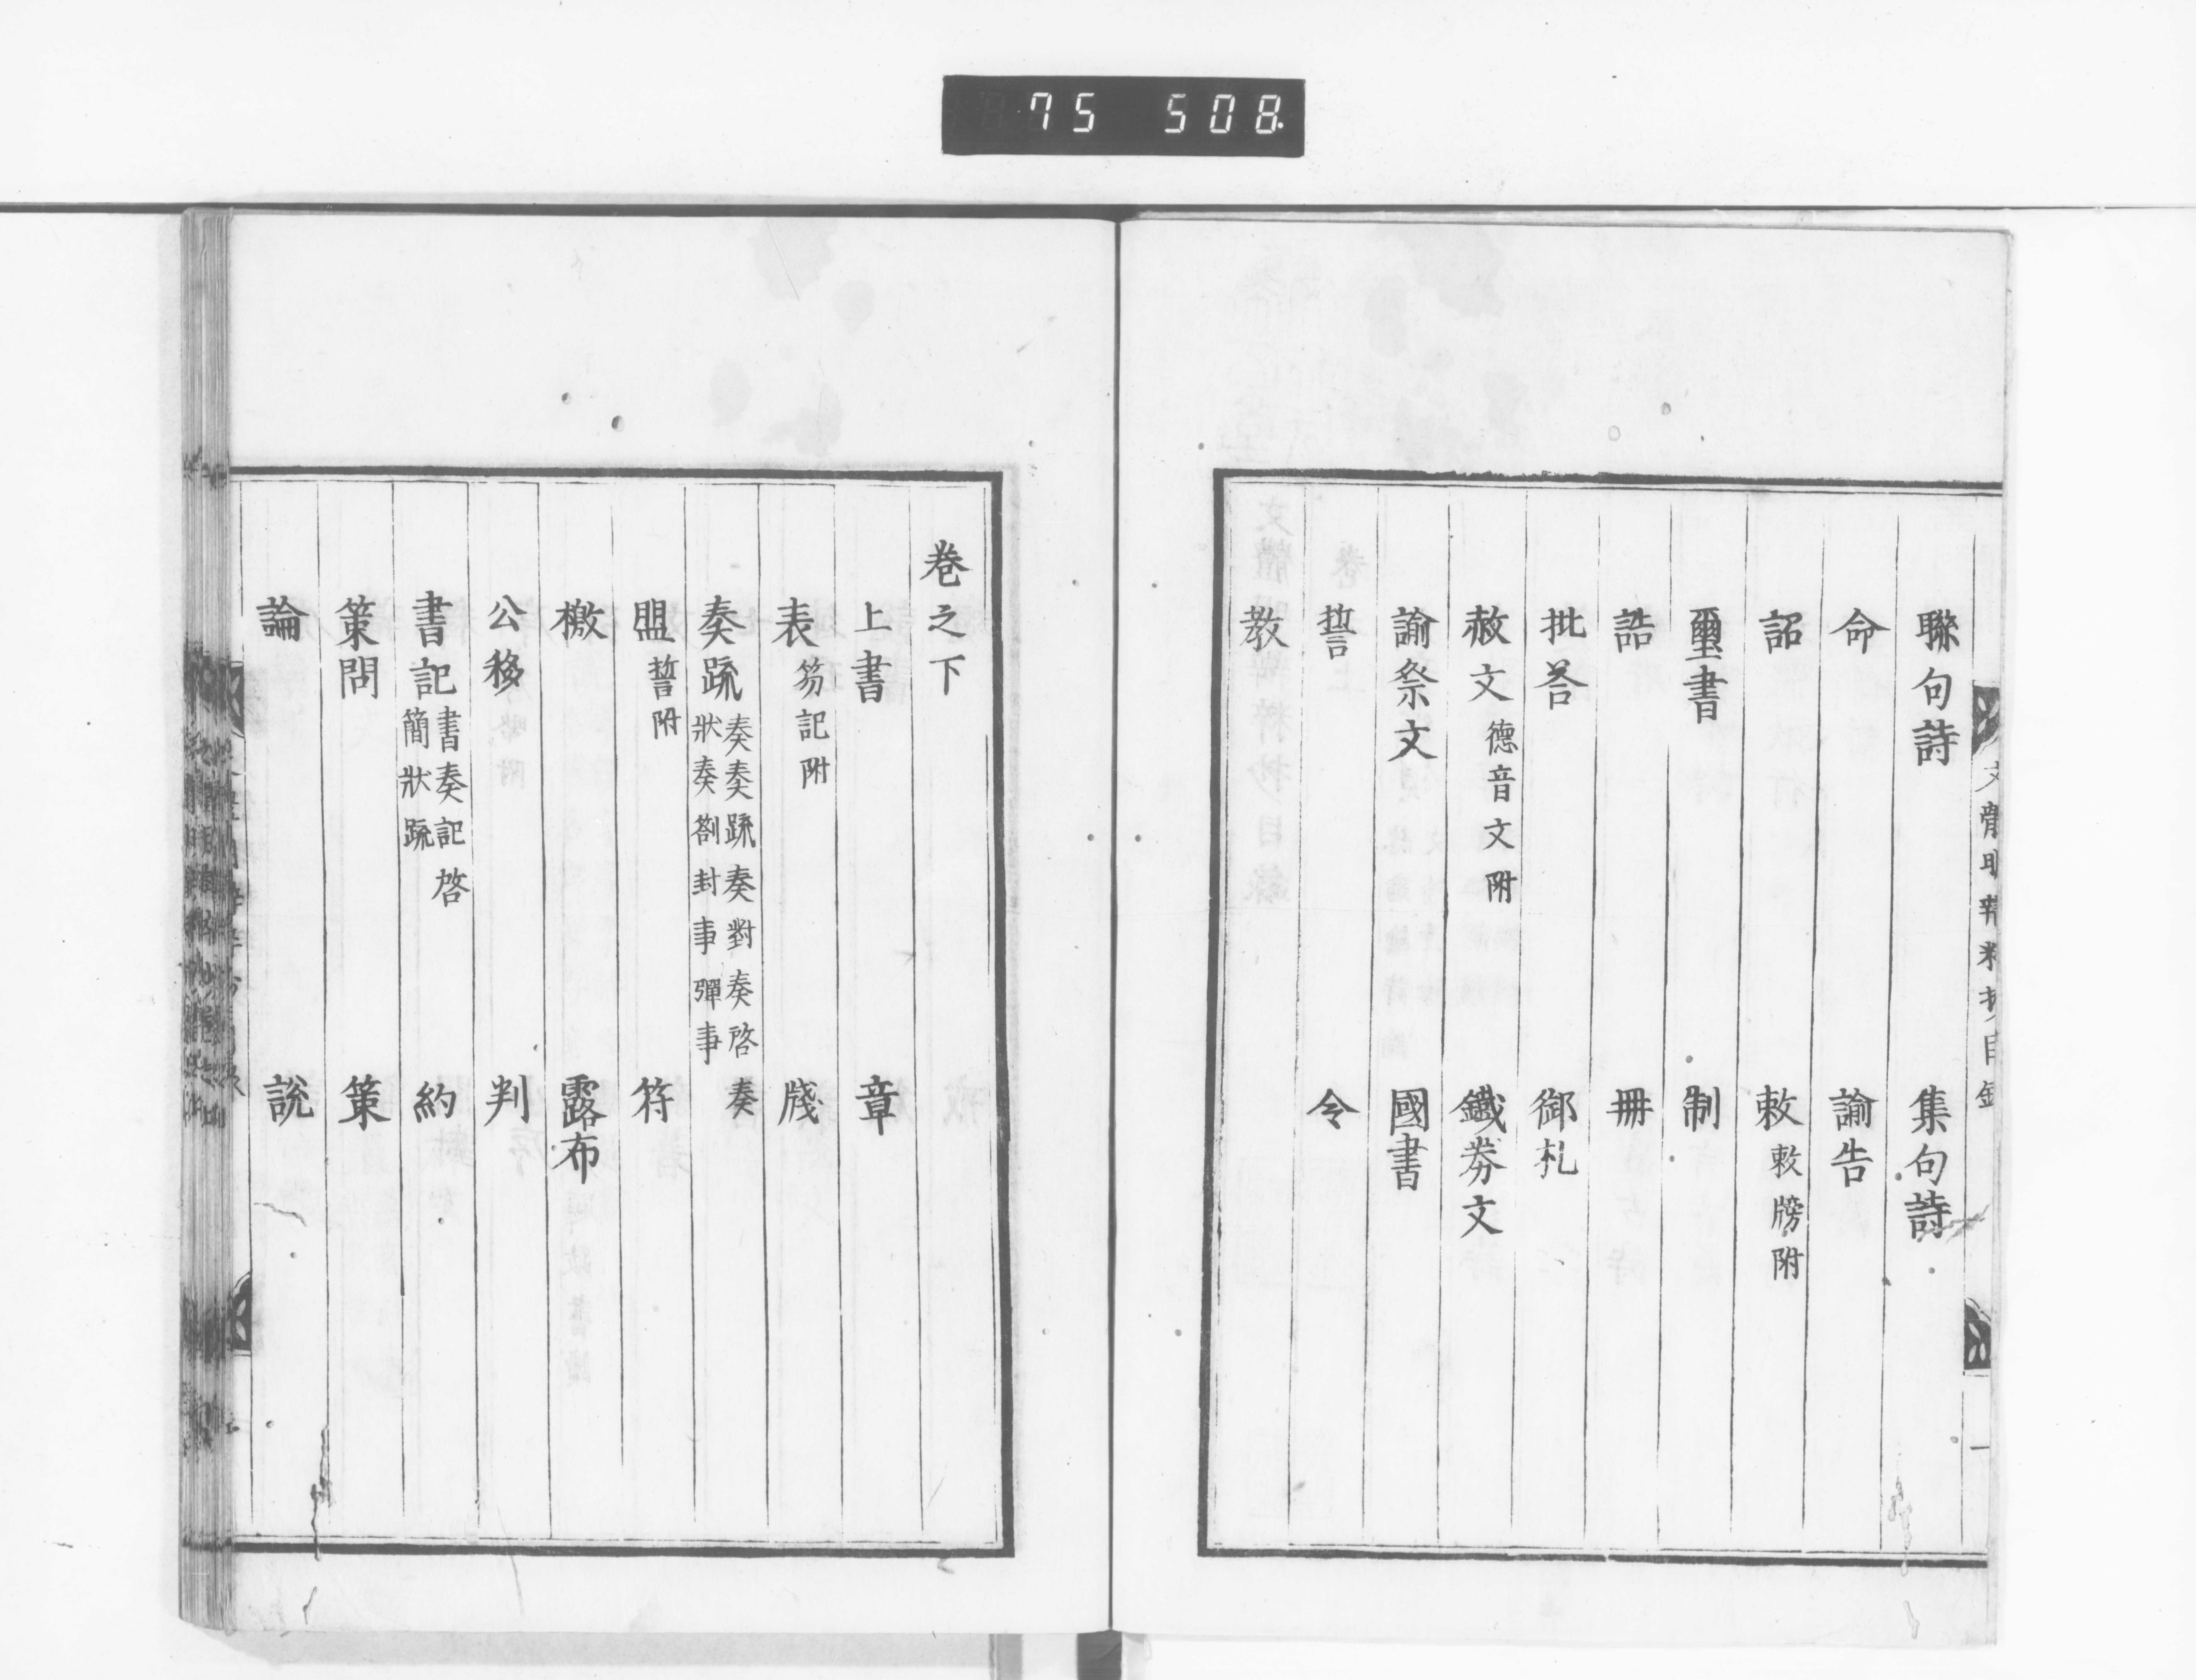 75 508
聯句詩 集句詩
命 諭告
詔 敕 敕牓附
璽書 制
誥 冊
批荅 御札
赦文 德音文附 鐵券文
諭祭文 國書
誓 令
教
卷之下
上書 章
表 笏記附 牋
奏疏 奏奏疏奏對奏啓奏
狀奏劄封事彈事
盟 誓附 符
檄 露布
公移 判
書記 書奏記啓
簡狀疏 約
策問 策
論 說